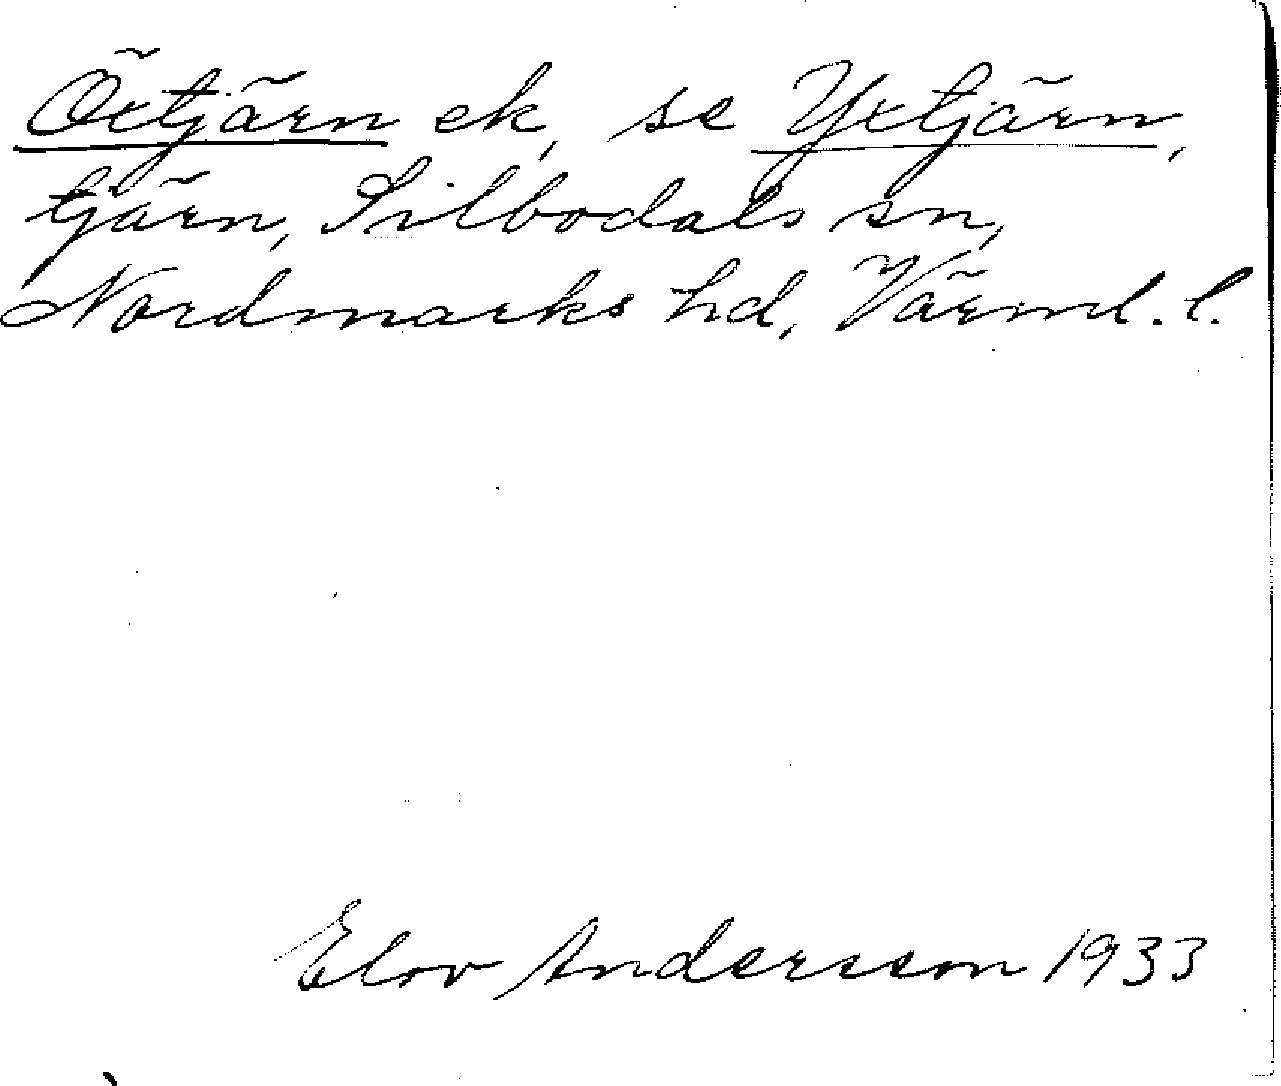 Öxtjärn ek, se Yxtjärn,
tjärn, Silbodals sn,
Nordmarks hd, Värml. l.
Elov Andersson 1933